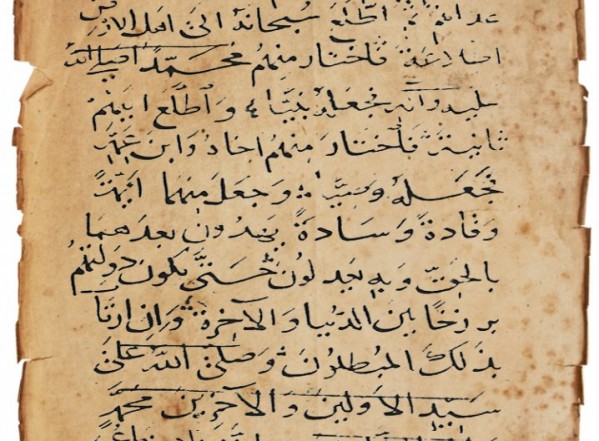 اطلع سبحانه الى اهل الارض
اطلاعة فاختار منهم محمدا صلى الله
عليه وآله فجعله نبيا، واطلع اليهم
ثانية فاختار منهم اخاه وابن عمه
فجعله وصيا، وجعل منهما ائمة
وقادة وسادة يهدون بعدهما
بالحق وبه يعدلون حتى تكون دولتهم
برزخا بين الدنيا والآخرة وان ارتاب
بذلك المبطلون وصلى الله على
سيد الاولين والآخرين محمد